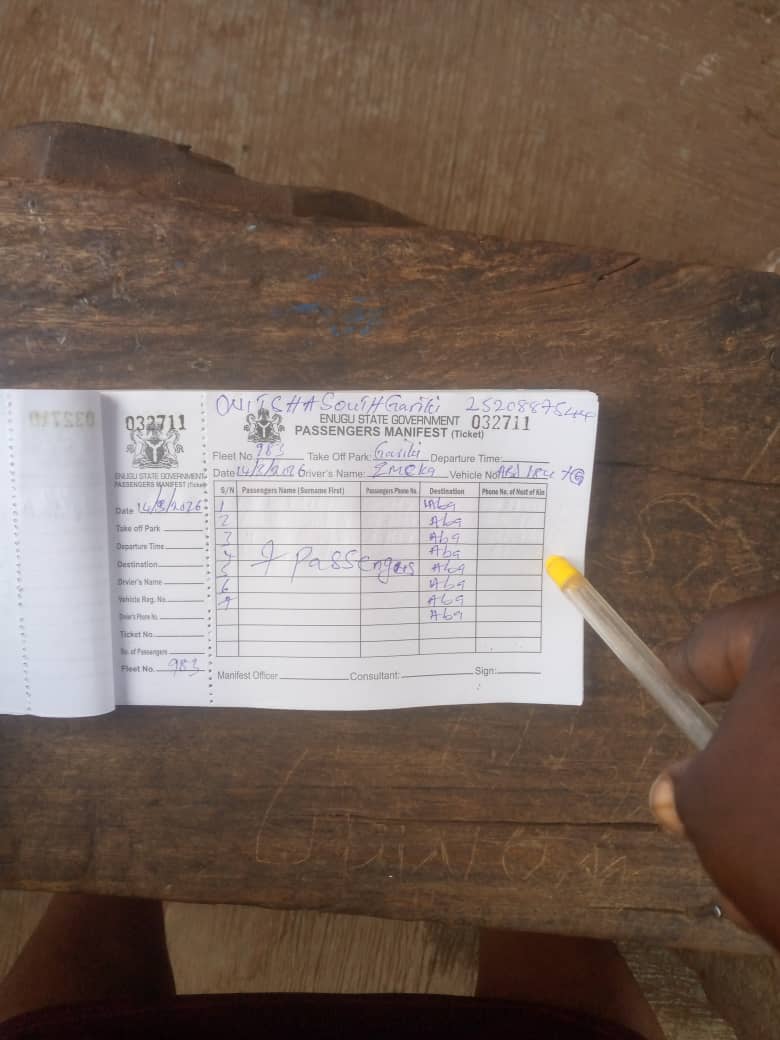 032711
ENUGU STATE GOVERNMENT
PASSENGERS MANIFEST (Ticket)
Date 14/3/2026
Take off Park
Departure Time
Destination
Drvier's Name
Vehicle Reg. No.
Driver's Phone No.
Ticket No.
No. of Passengers
Fleet No. 983
ONITSHA South Gariki
ENUGU STATE GOVERNMENT 032711
PASSENGERS MANIFEST (Ticket)
Fleet No 983 Take Off Park: Gariki Departure Time:
Date 14/3/2026 Driver's Name: EMEKA Vehicle No
S/N Passengers Name (Surname First) Passengers Phone No. Destination Phone No. of Next of Kin
1 Aba
2 Aba
3 Aba
4 Aba
5 7 Passengers Aba
6 Aba
7 Aba
Aba
Manifest Officer Consultant: Sign: